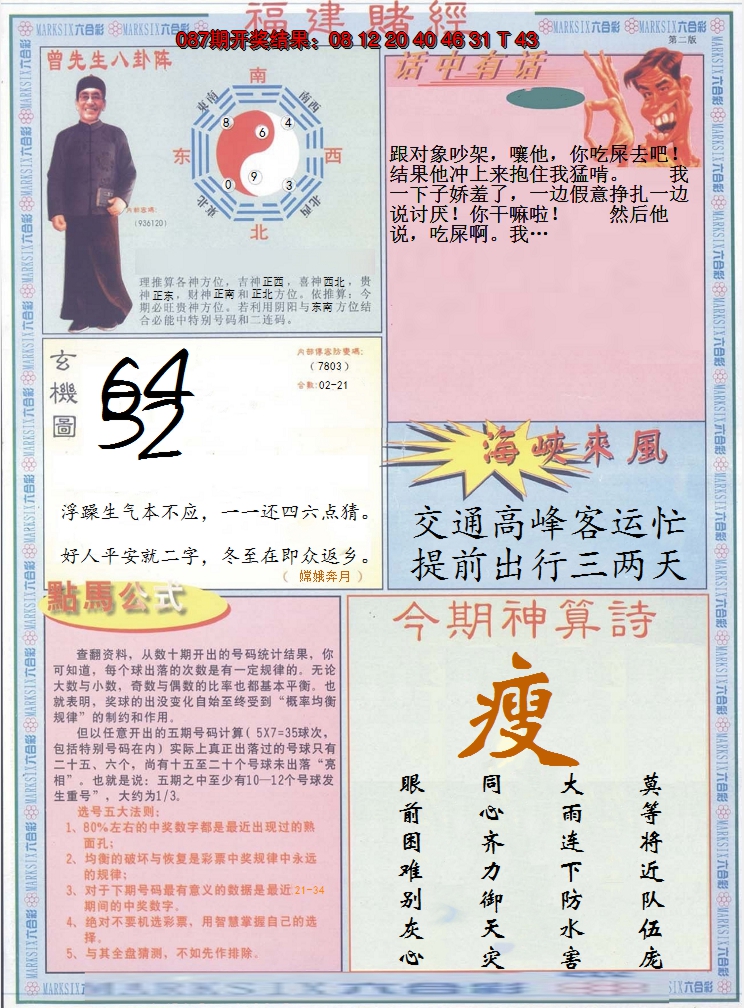 福建賭經
087期开奖结果：08 12 20 40 46 31 T 43
MARKSIX六合彩
第二版
曾先生八卦阵
南
东南
南西
8
4
6
东
西
9
0
3
东北
北西
北
内部密碼:
(936120)
理推算各神方位，吉神正西，喜神西北，贵
神正东，财神正南和正北方位。依推算：今
期必旺贵神方位。若利用阴阳与东南方位结
合必能中特别号码和二连码。
话中有话
跟对象吵架，嚷他，你吃屎去吧！
结果他冲上来抱住我猛啃。　　我
一下子娇羞了，一边假意挣扎一边
说讨厌！你干嘛啦！　　然后他
说，吃屎啊。我…
玄機圖
64
52
内部傳密防變碼:
(7803)
合数:02-21
浮躁生气本不应，一一还四六点猜。
好人平安就二字，冬至在即众返乡。
（ 嫦娥奔月 ）
海峽來風
交通高峰客运忙
提前出行三两天
點馬公式
查翻资料，从数十期开出的号码统计结果，你
可知道，每个球出落的次数是有一定规律的。无论
大数与小数，奇数与偶数的比率也都基本平衡。也
就表明，奖球的出没变化自始至终受到“概率均衡
规律”的制约和作用。
但以任意开出的五期号码计算( 5X7=35球次，
包括特别号码在内) 实际上真正出落过的号球只有
二十五、六个，尚有十五至二十个号球未出落“亮
相”。也就是说：五期之中至少有10—12个号球发
生重号”，大约为1/3。
选号五大法则:
1、80%左右的中奖数字都是最近出现过的熟
面孔;
2、均衡的破坏与恢复是彩票中奖规律中永远
的规律;
3、对于下期号码最有意义的数据是最近21-34
期间的中奖数字。
4、绝对不要机选彩票，用智慧掌握自己的选
择。
5、与其全盘猜测，不如先作排除。
今期神算詩
瘦
莫等将近队伍庞
大雨连下防水害
同心齐力御天灾
眼前困难别灰心